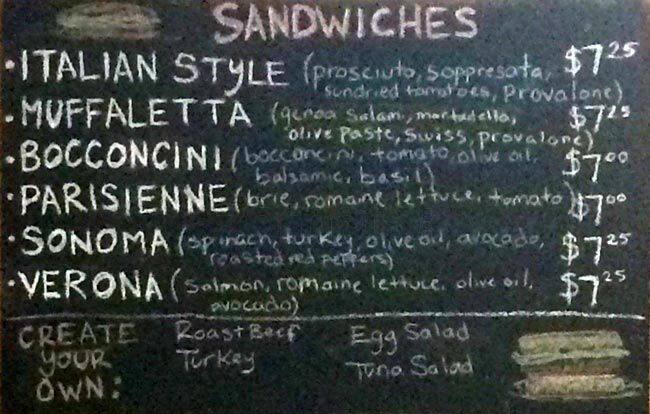 SANDWICHES
• ITALIAN STYLE (prosciuto, soppresata, $7.25
sundried tomatoes, provalone)
• MUFFALETTA (genoa salami, mortadella, $7.25
olive paste, swiss, provalone)
• BOCCONCINI (bocconcini, tomato, olive oil, $7.00
balsamic, basil)
• PARISIENNE (brie, romaine lettuce, tomato) $7.00
• SONOMA (spinach, turkey, olive oil, avocado, $7.25
roasted red peppers)
• VERONA (salmon, romaine lettuce, olive oil, $7.25
avocado)
CREATE Roast Beef Egg Salad
YOUR Turkey Tuna Salad
OWN: